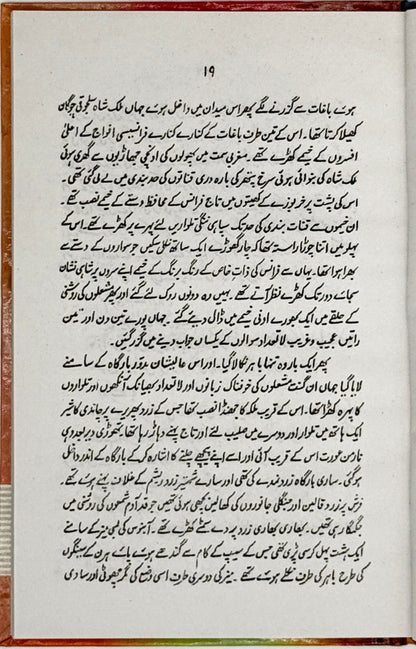 ۱۹
ہوئے باغات سے گزرنے لگے پھر اس میدان میں داخل ہوئے جہاں ملک شاہ سلجوقی چوگان
کھیلا کرتا تھا۔ اس کے تین طرف باغات کے کنارے کنارے فرانسیسی افواج کے اعلیٰ
افسروں کے خیمے کھڑے تھے۔ مغربی سمت میں پھولوں کی اونچی جھاڑیوں سے گھری ہوئی
ملک شاہ کی بنوائی ہوئی سرخ پتھر کی بارہ دری قناتوں کی حد بندی میں لے لی گئی تھی۔
اس کی پشت پر خربوزے کے کھیتوں میں تاج فرانس کے محافظ دستے کے خیمے نصب تھے۔
ان خیموں سے قنات بندی کی حد تک سپاہی ننگی تلواریں لئے پہرے پر کھڑے تھے۔ اس کے
پہلو میں اتنا چوڑا راستہ تھا کہ چار گھوڑے ایک ساتھ نکل سکیں جو سواروں کے دستے سے
بھرا ہوا تھا۔ یہاں سے فرانس کی ذات خاص کے رنگ برنگ کے خیمے اپنے سروں پر شاہی نشان
سجائے دور تک کھڑے نظر آتے تھے۔ یہیں وہ دونوں روک لئے گئے اور پھر مشعلوں کی روشنی
کے حلقے میں ایک بھورے اونی خیمے میں ڈال دیئے گئے۔ جہاں پورے تین دن اور تین
راتیں عجیب و غریب لاتعداد سوالوں کے یکساں جواب دینے میں گزر گئیں۔
پھر ایک بار وہ تنہا باہر نکالا گیا۔ اور اس عالیشان مدور بارگاہ کے سامنے
لایا گیا جہاں ان گنت مشعلوں کی خوفناک زبانوں اور لاتعداد بھیانک آنکھوں اور تلواروں
کا پہرہ کھڑا تھا۔ اس کے قریب ملکہ کا جھنڈا نصب تھا جس کے زرد پھریرے پر چاندی کا شیر
ایک ہاتھ میں تلوار اور دوسرے میں صلیب لئے اور تاج پہنے دہاڑ رہا تھا۔ تھوڑی دیر بعد وہی
نارمن عورت اس کے قریب آئی اور اسے اپنے پیچھے چلنے کا اشارہ کر کے بارگاہ کے اندر داخل
ہو گئی۔ ساری بارگاہ زرد نمدے کی تھی اور سارے شہتیر زرد ریشم کے غلاف پہنے ہوئے تھے۔
فرش پر زرد قالین اور جنگلی جانوروں کی کھالیں بچھی ہوئی تھیں جو قد آدم شمعوں کی روشنی میں
جگمگا رہی تھیں۔ بھاری بھاری زرد پردے سمٹے کھڑے تھے۔ آبنوس کی لمبی میز کے سامنے
ایک ہشت پہل کرسی پڑی تھی جس کے سیپ کے کام سے گندھے ہوئے بازو ہرن کے سینگوں
کی طرح باہر کی طرف نکلے ہوئے تھے۔ میز کی دوسری طرف اسی وضع کی مگر چھوٹی اور سادی